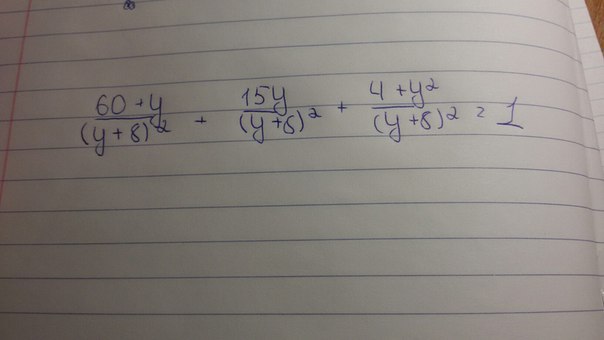 (60 + y)/(y + 8)² + 15y/(y + 8)² + (4 + y²)/(y + 8)² = 1